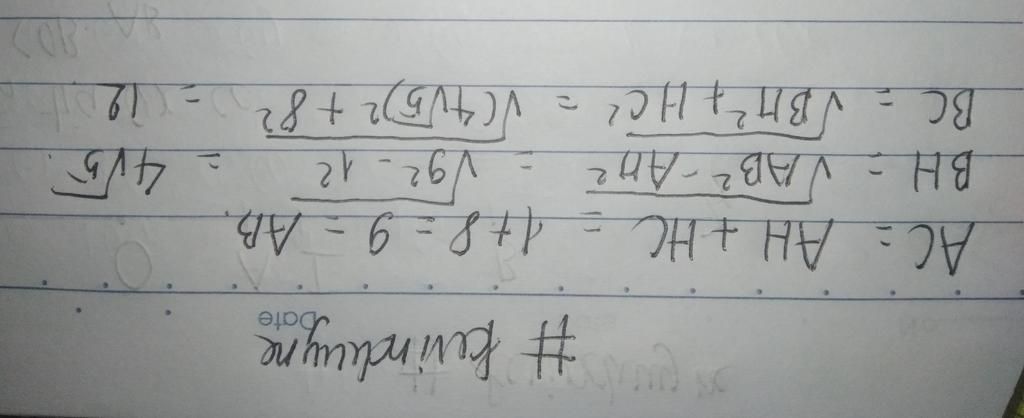 # kevinduyne
Date
AC = AH + HC = 1 + 8 = 9 = AB.
BH = √AB² - AH² = √9² - 1² = 4√5.
BC = √BH² + HC² = √(4√5)² + 8² = 12